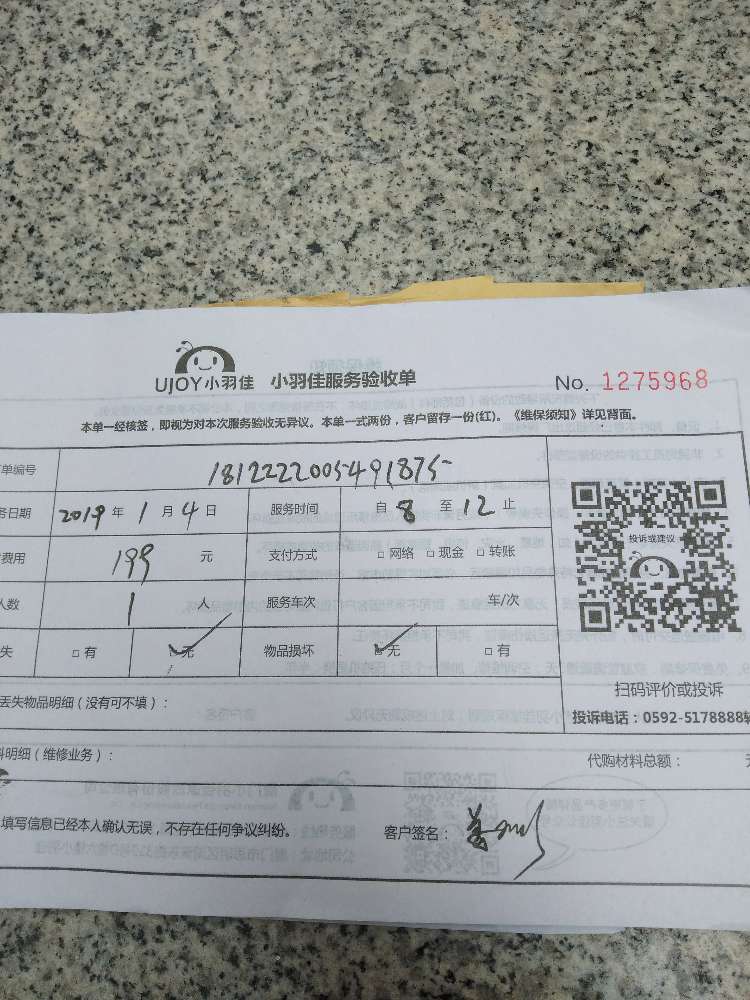 UJOY小羽佳 小羽佳服务验收单 No. 1275968
本单一经核签，即视为对本次服务验收无异议。本单一式两份，客户留存一份(红)。《维保须知》详见背面。
单编号 1812222005491875
务日期 2019 年 1 月 4 日 服务时间 自 8 至 12 止
费用 199 元 支付方式 □ 网络 □ 现金 □ 转账
人数 1 人 服务车次 车/次
失 □ 有 □ 无 物品损坏 □ 无 □ 有
投诉或建议
扫码评价或投诉
丢失物品明细（没有可不填）：
投诉电话：0592-5178888转
料明细（维修业务）： 代购材料总额：
填写信息已经本人确认无误，不存在任何争议纠纷。 客户签名：